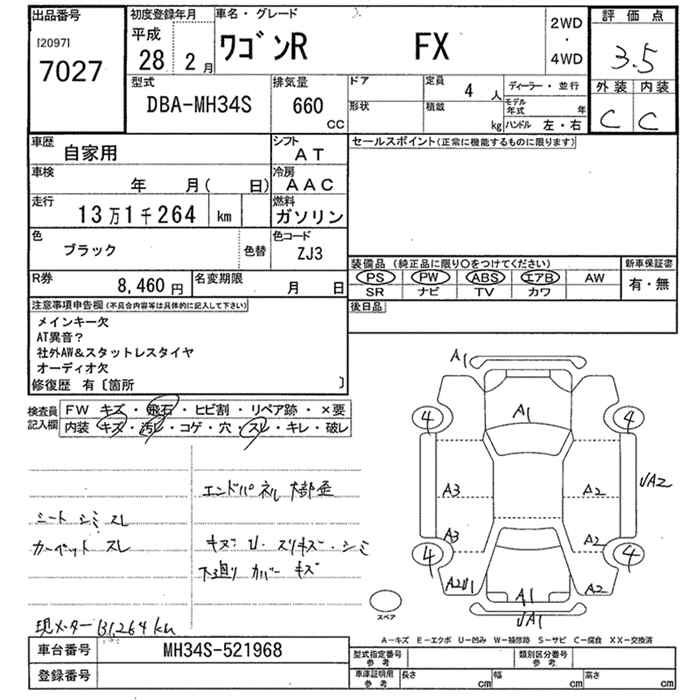 出品番号 初度登録年月 車名・グレード 評価点
[2097] 平成 2WD
7027 28 2月 ワゴンR FX ・ 3.5
4WD
型式 排気量 ドア 定員 4 人 ディーラー・並行 外装 内装
DBA-MH34S 660 CC 形状 積載 kg モデル年式 年 C C
ハンドル 左・右
車歴 自家用 シフト AT セールスポイント(正常に機能するものに限ります)
車検 年 月( 日) 冷房 AAC
走行 13万1千264 km 燃料 ガソリン
色 ブラック 色替 色コード ZJ3
装備品(純正品に限り○をつけてください) 新車保証書
R券 8,460円 名変期限 月 日 PS PW ABS エアB AW 有・無
SR ナビ TV カワ
注意事項申告欄(不具合内容等は具体的に記入して下さい) 後日品
メインキー欠
AT異音?
社外AW&スタットレスタイヤ
オーディオ欠
修復歴 有〔箇所 〕
検査員記入欄 FW キズ・飛石・ヒビ割・リペア跡・×要
内装 キズ・汚レ・コゲ・穴・スレ・キレ・破レ
A1
4 A1 4
A3 A2 VA2
A3 A2
4 4
A2U1 A1 A2
VA1
エンドパネル 大部歪
シート シミ スレ
カーペット スレ キズ U・スリキズ・シミ
下廻り カバー キズ
スペア
現メーター 131,264km
A−キズ E−エクボ U−凹み W−補修跡 S−サビ C−腐食 XX−交換済
車台番号 MH34S-521968 型式指定番号 参考 類別区分番号 参考
登録番号 車庫証明用 参考 長さ cm 幅 cm 高さ cm